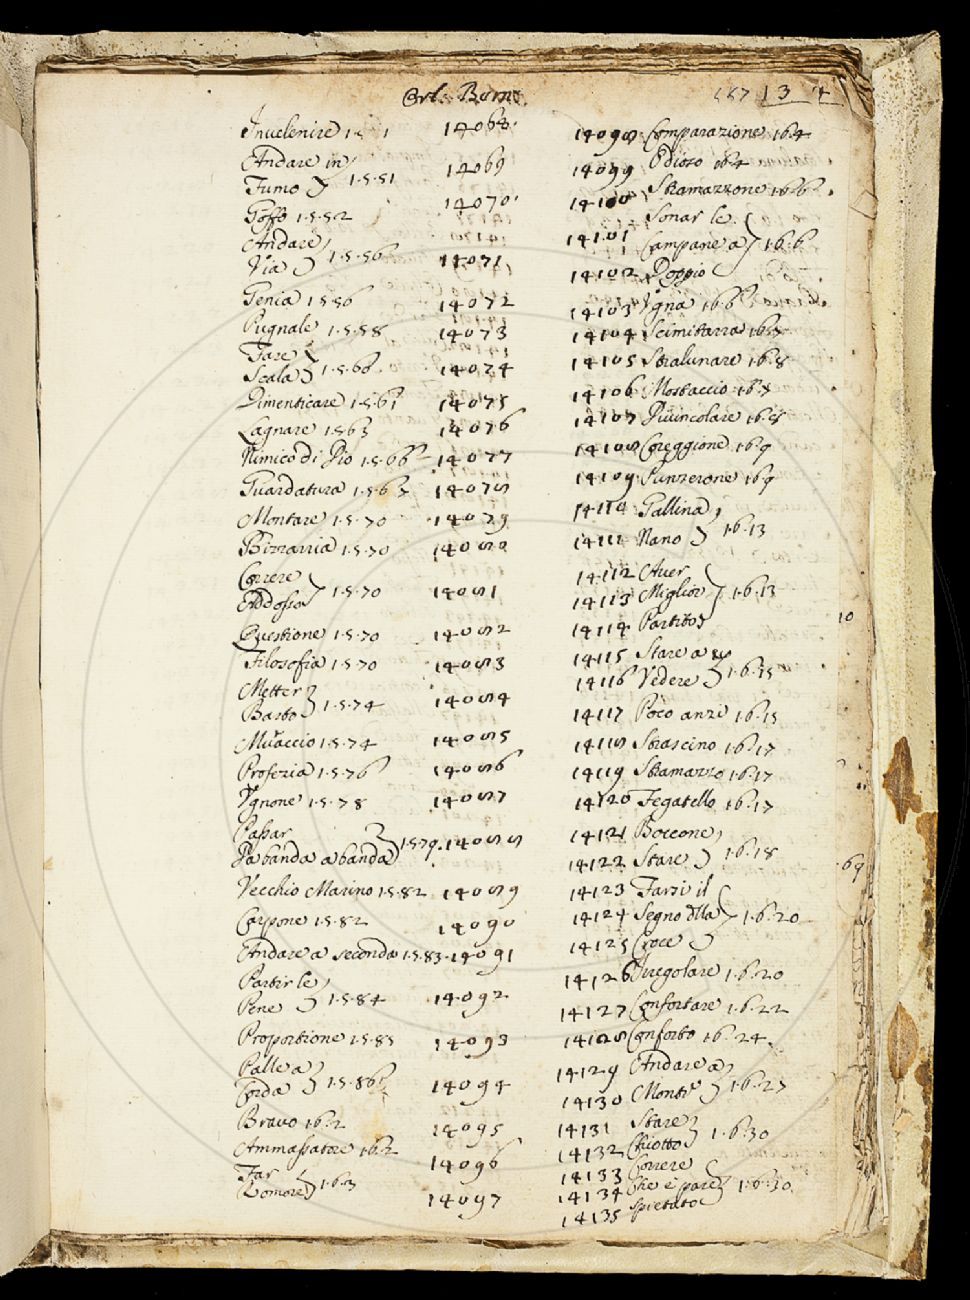 Orl. Berno.
167 13
Inuelenire 1·5· 1 14068·
Andare in
Fumo 1·5·51 14069
Goffo 1·5·52 14070·
Andare
Via 1·5·56 14071
Genia 1·5·56 14072
Pugnale 1·5·58 14073
Fare
Scala 1·5·60 14074
Dimenticare 1·5·61 14075
Lagnare 1·5·63 14076
Nimico di Dio 1·5·66 14077
Guardatura 1·5·63 14078
Montare 1·5·70 14079
Bizzarria 1·5·70 14080
Correre
Addosso 1·5·70 14081
Questione 1·5·70 14082
Filosofia 1·5·70 14083
Metter
Basto 1·5·74 14084
Muaccio 1·5·74 14085
Proferia 1·5·76 14086
Vgnone 1·5·78 14087
Passar
Da banda a banda 1·5·79· 14088
Vecchio Marino 1·5·82 14089
Carpone 1·5·82 14090
Andare a seconda 1·5·83· 14091
Partir le
Pene 1·5·84 14092
Proportione 1·5·85 14093
Palle a
Corda 1·5·86 14094
Brauo 1·6·2 14095
Ammassatore 1·6·2 14096
Far
Romore 1·6·3 14097
14098 Comparazione 1·6·4
14099 Odioso 1·6·4
14100 Stramazzone 1·6·6
14101 Sonar le
Campane a 1·6·6
14102 Doppio
14103 Vgna 1·6·6
14104 Scimitarra 1·6·
14105 Stralunare 1·6·8
14106 Mostaccio 1·6·
14107 Diuincolare 1·6·8
14108 Coreggione 1·6·9
14109 Punzerone 1·6·9
14110 Gallina
14111 Nano 1·6·13
14112 Auer
14113 Miglior 1·6·13
14114 Partito
14115 Stare a
14116 Vedere 1·6·15
14117 Poco anzi 1·6·15
14118 Strascino 1·6·17
14119 Stramazzo 1·6·17
14120 Fegatello 1·6·17
14121 Boccone
14122 Stare 1·6·18
14123 Farsi il
14124 Segno dlla 1·6·20
14125 Croce
14126 Iuregolare 1·6·20
14127 Confortare 1·6·22
14128 Conforto 1·6·24
14129 Andare a
14130 Monte 1·6·27
14131 Stare
14132 Chiotto 1·6·30
14133 Correre
14134 Che è pare 1·6·30
14135 spietato
10
69